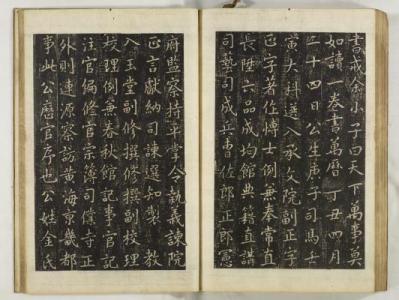 書戒余小子曰天下萬事莫
如讀一卷書萬曆丁丑四月
二十四日公生庚子司馬壬
寅大科選入承文院副正字
正字著作博士例兼奉常直
長陞六品成均館典籍直講
司藝司成兵曹佐郎正郎憲
府監察持平掌令執義諫院
正言獻納司諫選知製教
入玉堂副修撰修撰副校理
校理例兼春秋館記事官記
注官編修官宗簿司僕寺正
外則連源察訪黃海京畿都
事此公歷官序也公姓金氏